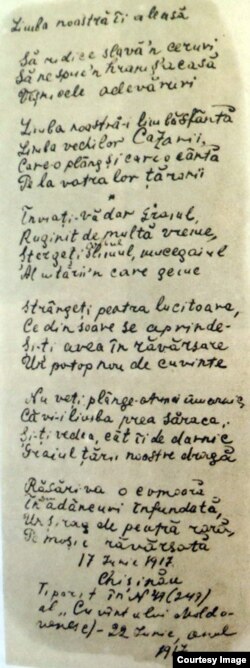 Limba noastră îi aleasă
Să ridice slavă'n ceruri
Să ne spue'n hram și'acasă
Veșnicele adevăruri
Limba noastră-i limbă sfântă
Limba vechilor Cazanii,
Care-o plâng și care-o cântă
Pe la vatra lor țăranii
*
Înviați-vă dar graiul,
Ruginit de multă vreme,
Ștergeți slinul, mucegaiul
Al uitării'n care geme
Strângeți peatra lucitoare,
Ce din soare se aprinde-
Și-ți avea în răvărsare
Un potop nou de cuvinte
Nu veți plânge-atunci amarnic,
Că vi-i limba prea săracă,
Și-ți vedea, cât îi de darnic
Graiul țării noastre dragă
Răsări-va o comoară
În adâncuri înfundată,
Un șirag de peatră rară
Pe moșie răvărsată
17 Iunie 1917
Chișinău
Tipărit în № (247)
al „Cuvântului Moldo-
venesc/- 22 Iunie, anul
1917
Courtesy Image